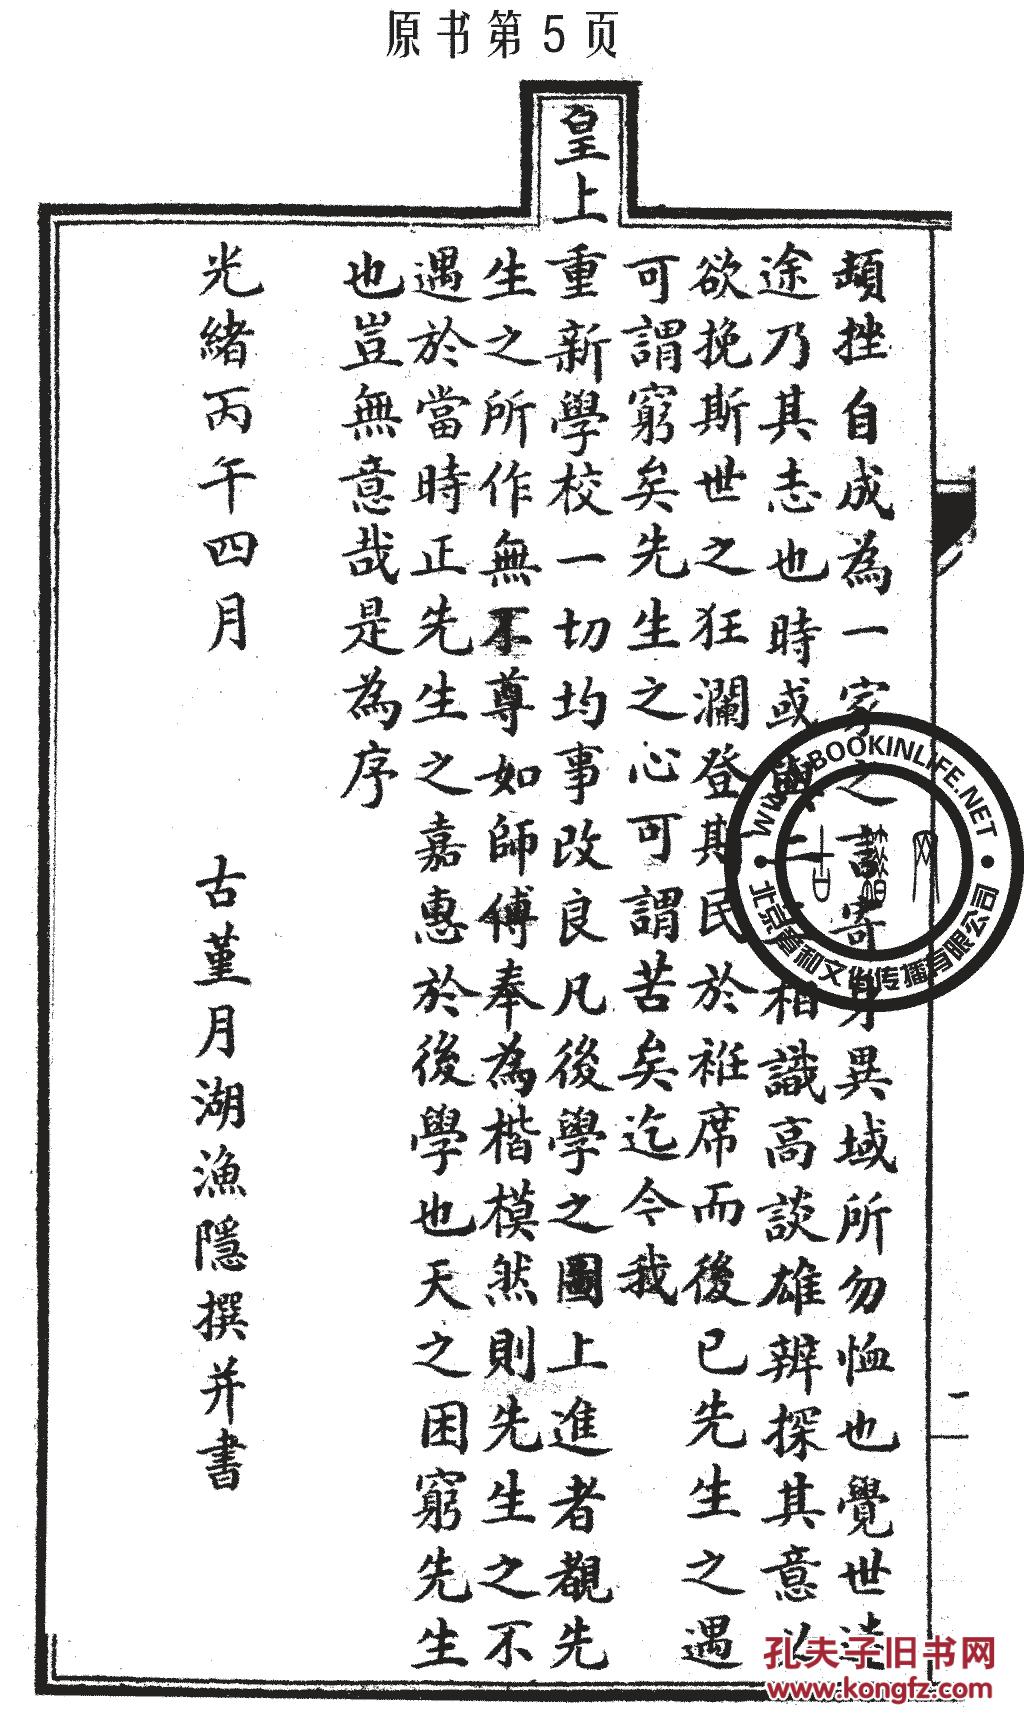 原书第5页
頓挫自成為一家之言寄身異域所勿恤也覺世
途乃其志也時或與二三相識高談雄辨探其意以
欲挽斯世之狂瀾登斯民於袵席而後已先生之遇
可謂窮矣先生之心可謂苦矣迄今我
皇上重新學校一切均事改良凡後學之圖上進者觀先
生之所作無不尊如師傅奉為楷模然則先生之不
遇於當時正先生之嘉惠於後學也天之困窮先生
也豈無意哉是為序
光緒丙午四月 古堇月湖漁隱撰并書
一
WWW.BOOKINLIFE.NET
北京育和文化传播有限公司
孔夫子旧书网
www.kongfz.com